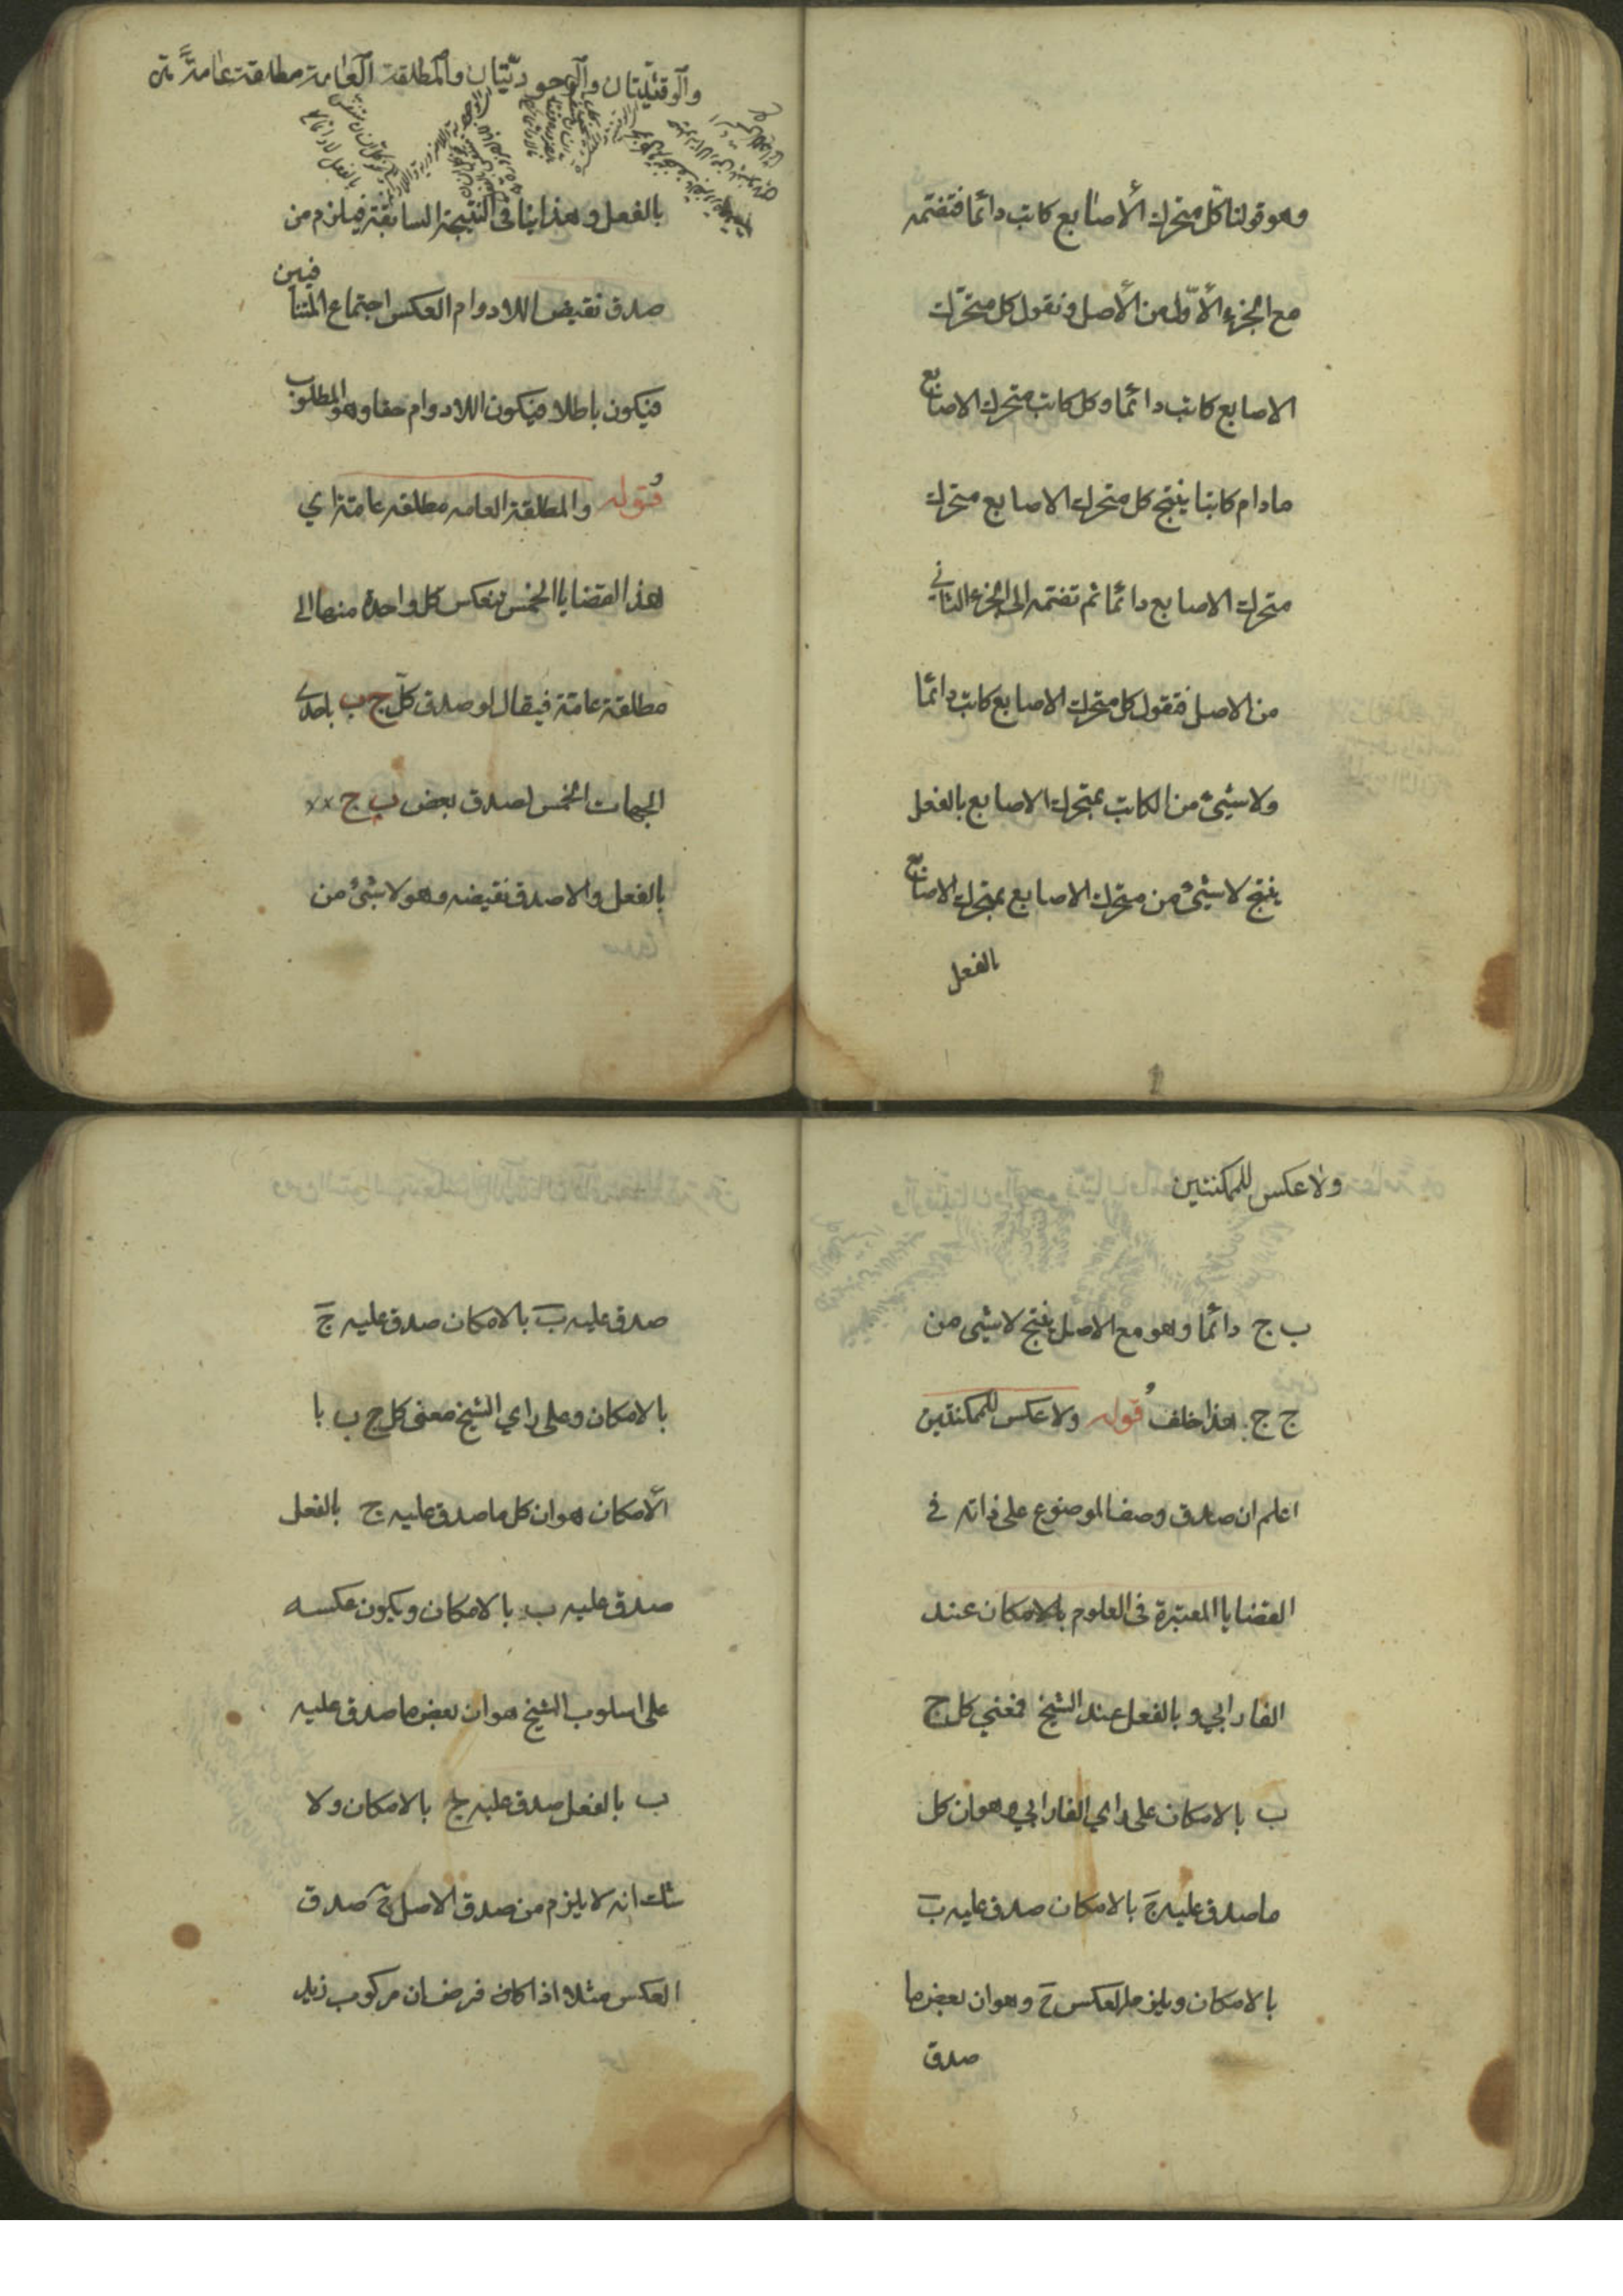 وهو قولنا كل متحرك الأصابع كاتب دائما فتضمه
مع الجزء الأول من الأصل ونقول كل متحرك
الاصابع كاتب دائما وكل كاتب متحرك الاصابع
مادام كاتبا ينتج كل متحرك الاصابع متحرك
متحرك الاصابع دائما ثم تضمه الى الجزء الثاني
من الاصل فنقول كل متحرك الاصابع كاتب دائما
ولا شيئ من الكاتب بمتحرك الاصابع بالفعل
ينتج لا شيئ من متحرك الاصابع بمتحرك الاصابع
بالفعل
والوقتيتان والوجوديتان والمطلقة العامة مطلقة عامة
بالفعل وهذا ينافي النتيجة السابقة فيلزم من
صدق نقيض اللادوام العكس اجتماع المتنافيين
فيكون باطلا فيكون اللادوام حقا وهو المطلوب
قوله والمطلقة العامه مطلقه عامة اي
هذا القضايا الخمس ينعكس كل واحدة منها الى
مطلقة عامة فيقال لو صدق كل ج ب باحدى
الجهات الخمس لصدق بعض ب ج
بالفعل والا صدق نقيضه وهو لا شيئ من
ولا عكس للممكنتين
ب ج دائما وهو مع الاصل ينتج لا شيئ من
ج ج هذا خلف قوله ولا عكس للممكنتين
اعلم ان صدق وصف الموضوع على ذاته في
القضايا المعتبرة في العلوم بالامكان عند
الفارابي وبالفعل عند الشيخ فمعني كل ج
ب بالامكان على راي الفارابي وهو ان كل
ما صدق عليه ج بالامكان صدق عليه ب
بالامكان ويلزم العكس ح وهو ان بعض ما
صدق
صدق عليه ب بالامكان صدق عليه ج
بالامكان وعلى راي الشيخ معنى كل ج ب با
الامكان هو ان كل ما صدق عليه ج بالفعل
صدق عليه ب بالامكان ويكون عكسه
على اسلوب الشيخ هو ان بعض ما صدق عليه
ب بالفعل صدق عليه ج بالامكان ولا
شك انه لا يلزم من صدق الاصل ح صدق
العكس مثلا اذا كان فرض ان مركوب زيد